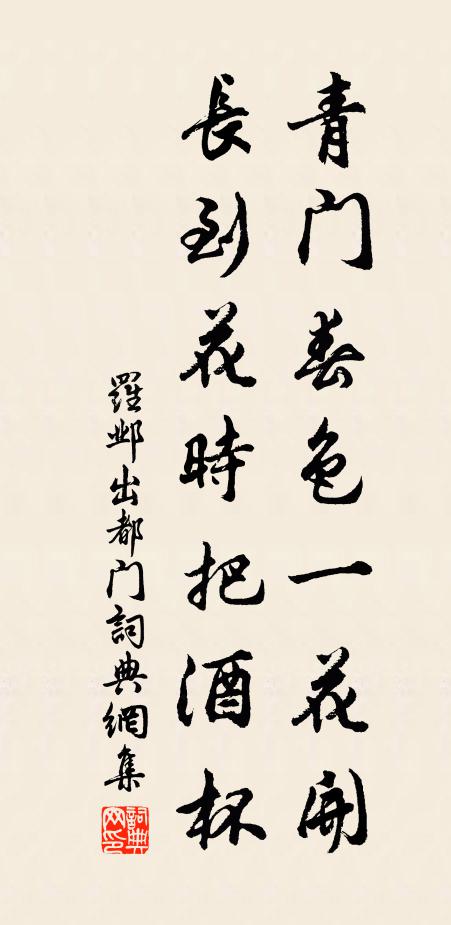 青门春色一花開
長到花時把酒杯
羅邺出都门詞典網集
詞典网印